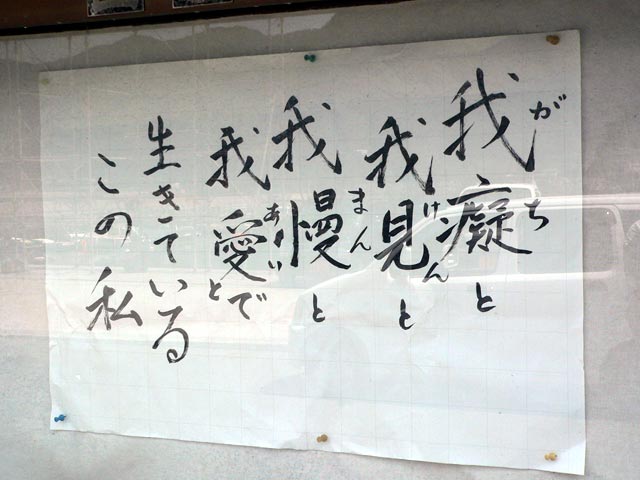 我癡と
がち
我見と
けん
我慢と
まん
我愛とで
あい
生きている
この私